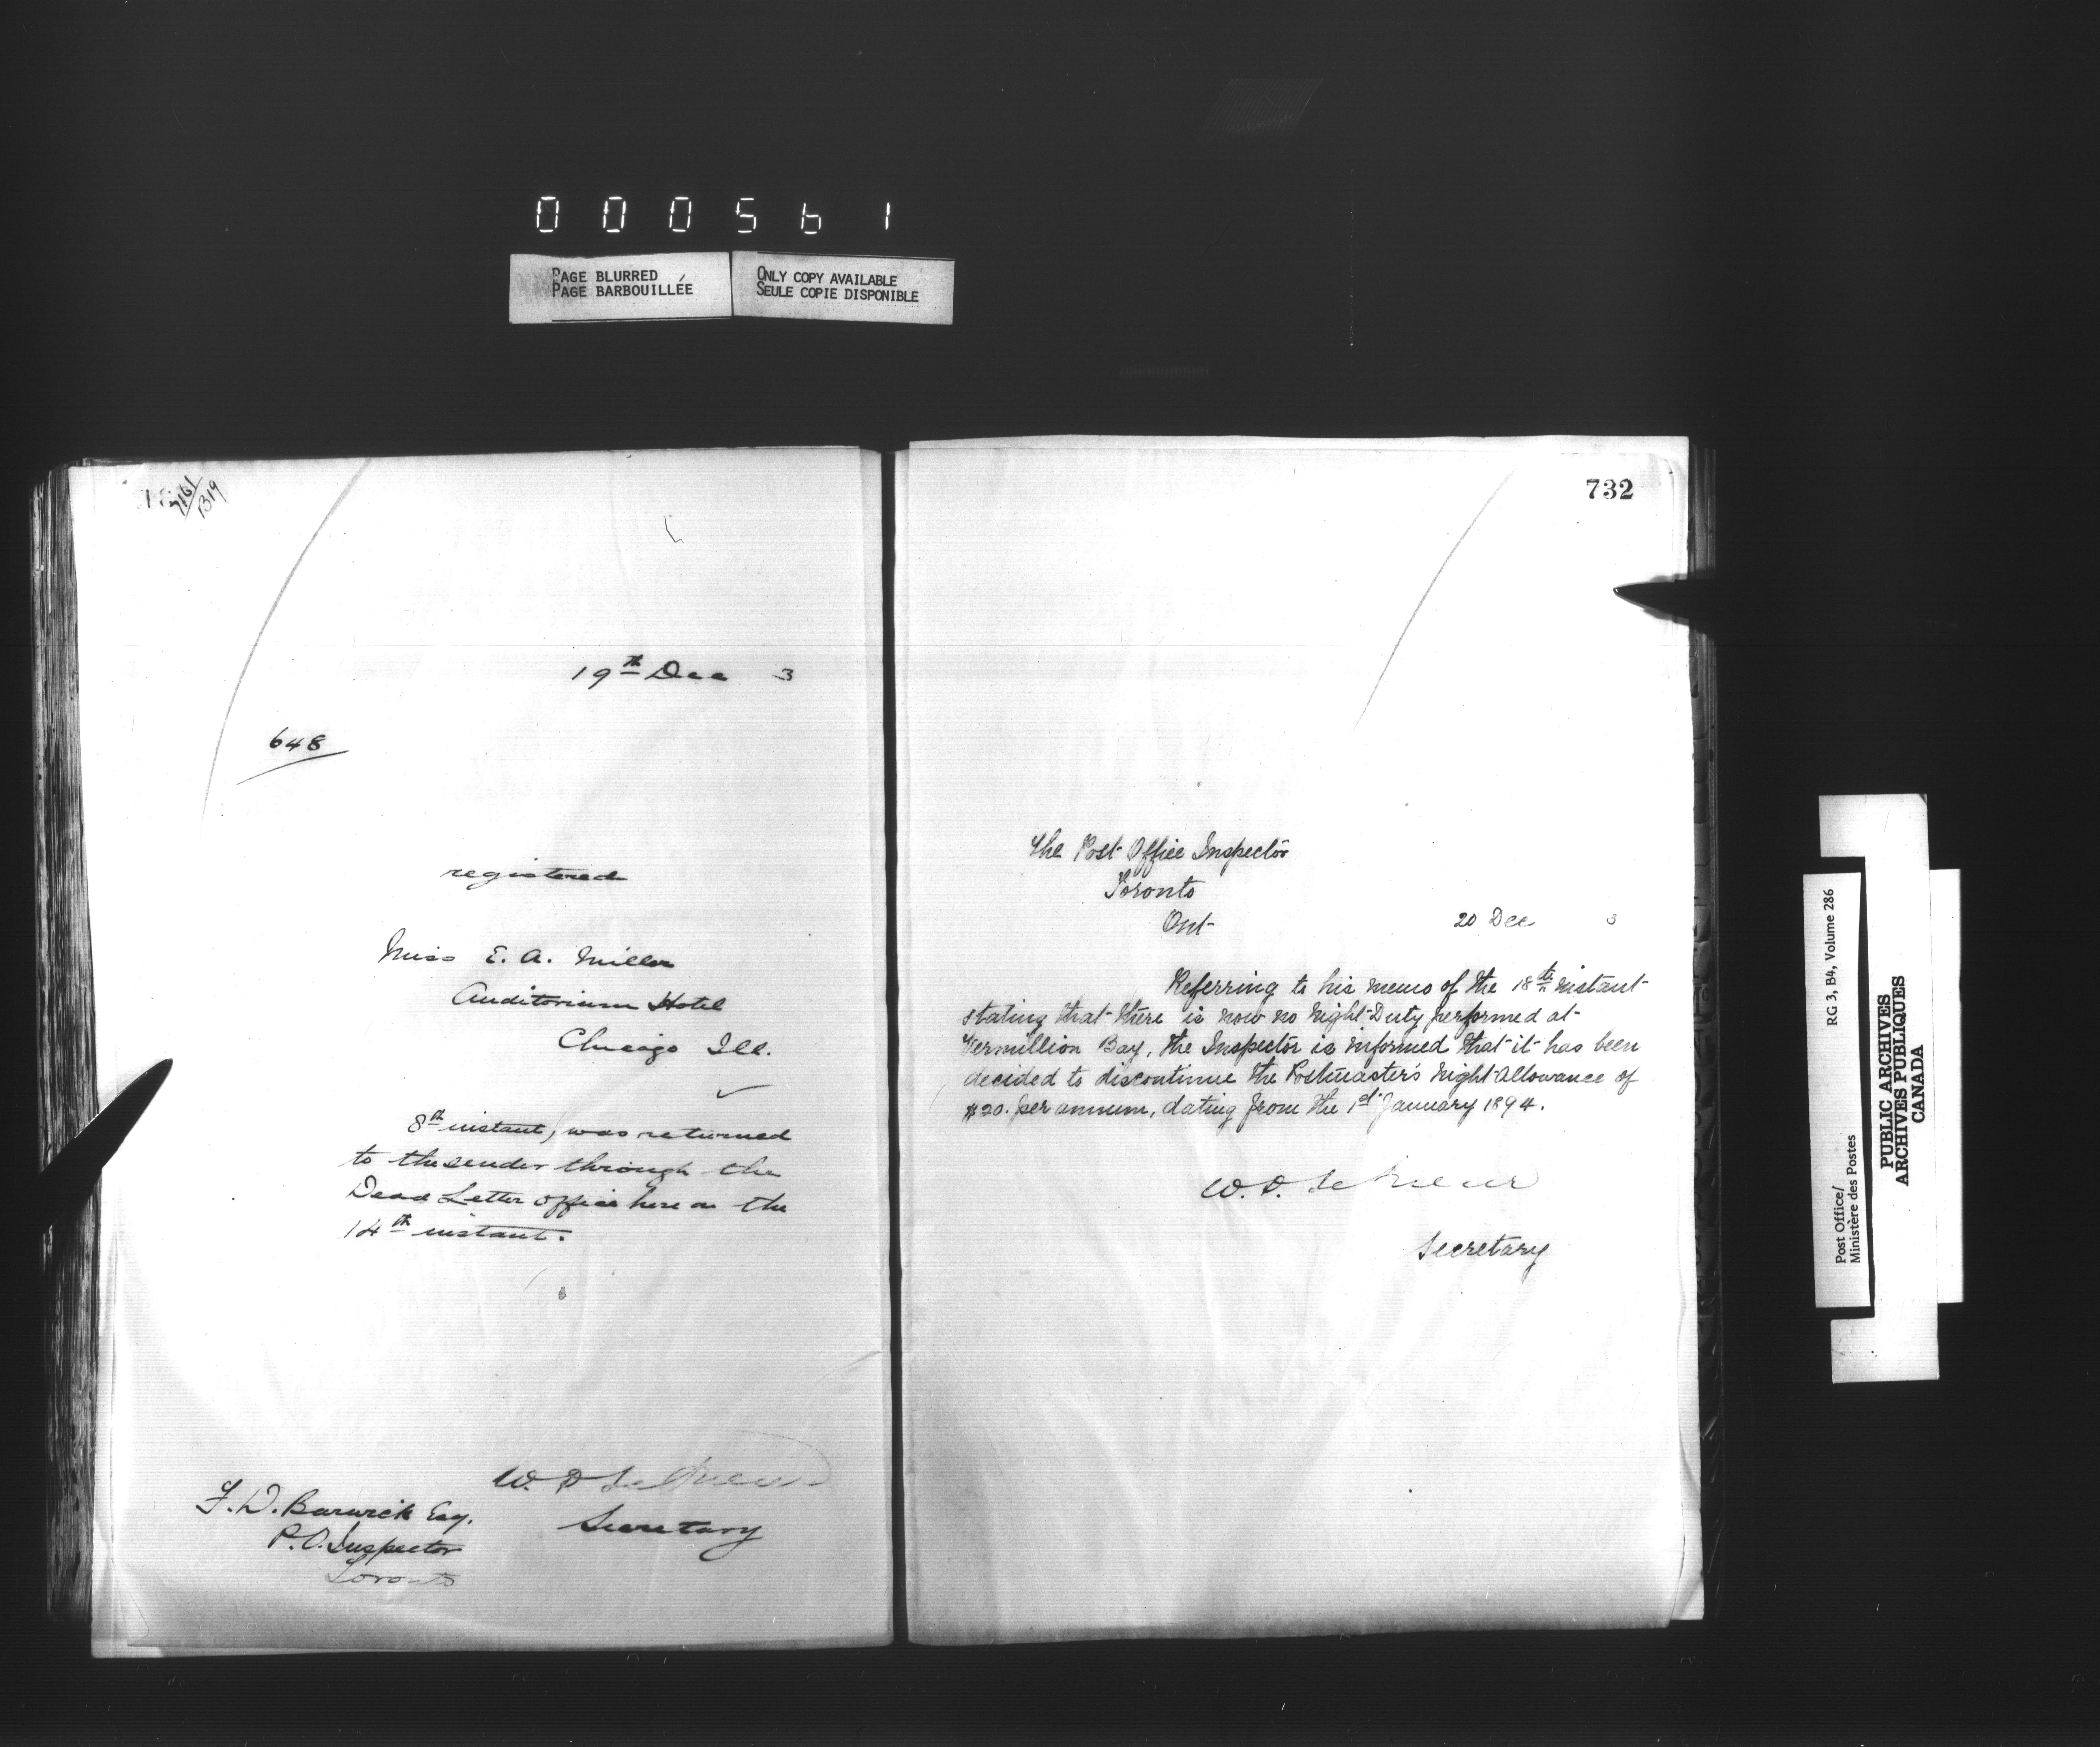 000561
PAGE BLURRED
PAGE BARBOUILLÉE
ONLY COPY AVAILABLE
SEULE COPIE DISPONIBLE
1319
19th Dec 3
648
registered
Miss E. A. Miller
Auditorium Hotel
Chicago Ill.
8th instant, was returned
to the sender through the
Dead Letter office here on the
14th instant.
W. D. LeSueur
Secretary
F. D. Barwick Esq.
P.O. Inspector
Toronto
732
The Post Office Inspector
Toronto
Ont
20 Dec 3
Referring to his memo of the 18th instant
stating that there is now no Night Duty performed at
Vermillion Bay, the Inspector is informed that it has been
decided to discontinue the Postmaster's Night Allowance of
$20. per annum, dating from the 1st January 1894.
W. D. LeSueur
Secretary
RG 3, B4, Volume 286
Post Office/
Ministère des Postes
PUBLIC ARCHIVES
ARCHIVES PUBLIQUES
CANADA